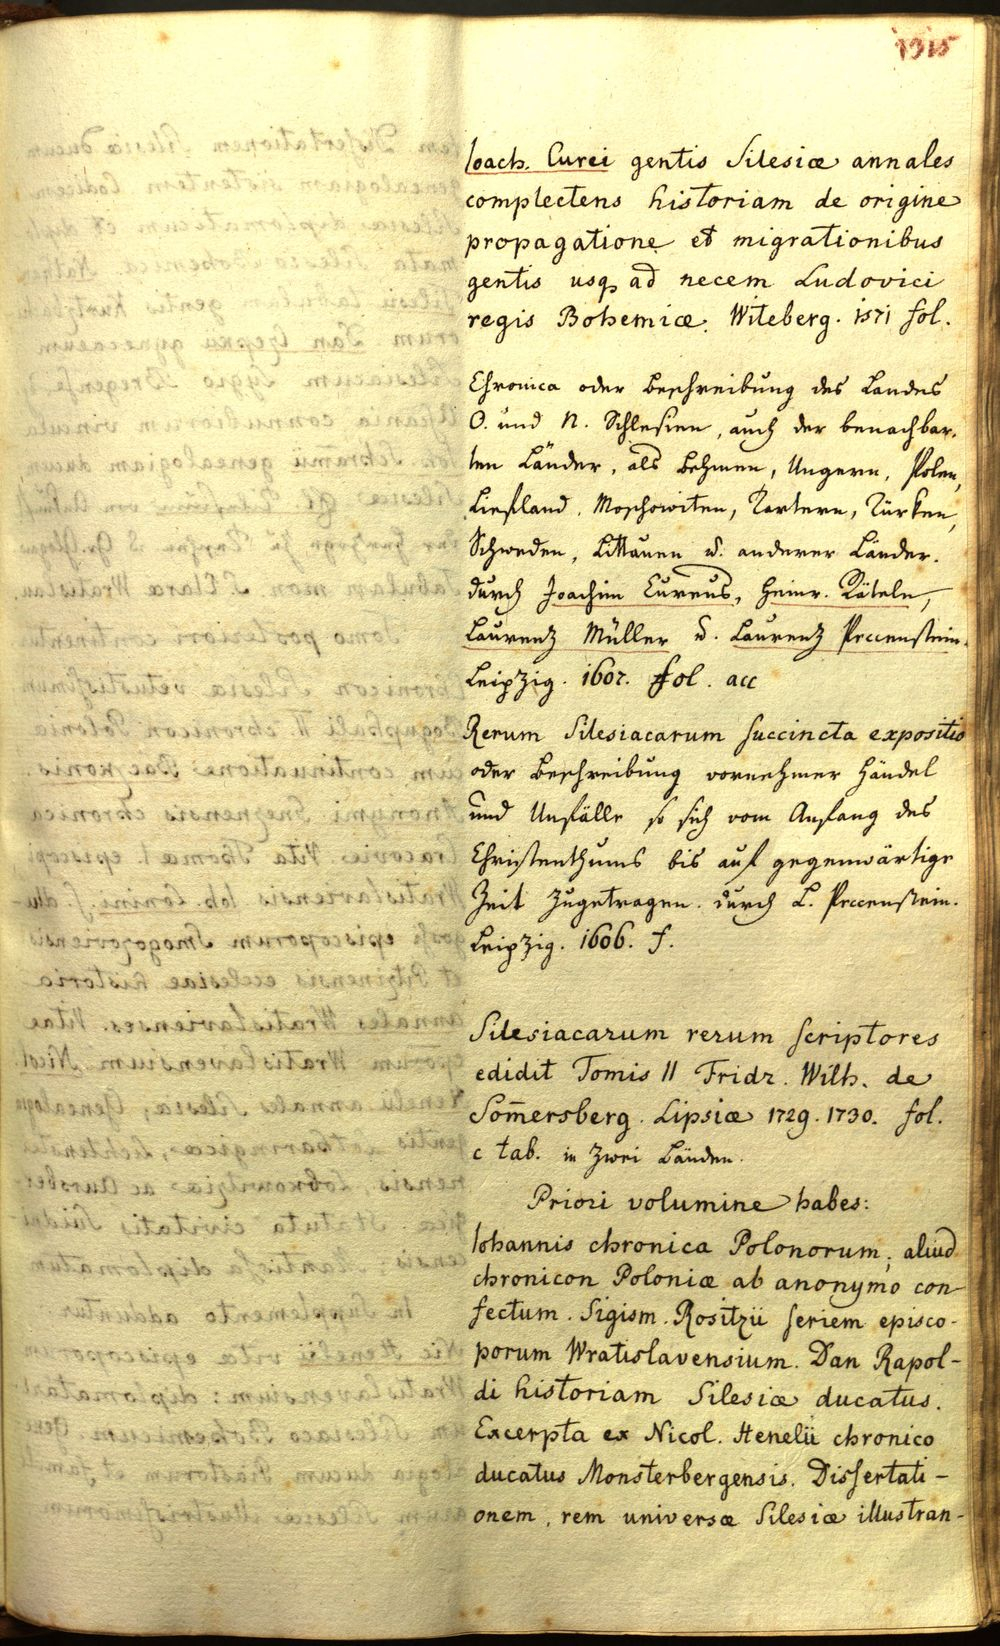 1315
Ioach. Curei gentis Silesiæ annales
complectens historiam de origine
propagatione et migrationibus
gentis usq. ad necem Ludovici
regis Bohemiæ. Witeberg. 1571 fol.
Chronica oder Beschreibung des Landes
O. und N. Schlesien, auch der benachbar-
ten Länder, als Behmen, Ungern, Polen,
Liefland, Moschowiten, Tartern, Türken,
Schweden, Littauen u. anderer Länder.
durch Joachim Cureus, Heinr. Räteln,
Laurenz Müller u. Laurenz
Leipzig. 1607. fol. acc
Rerum Silesiacarum succincta expositio
oder Beschreibung vornehmer Händel
und Unfälle so sich vom Anfang des
Christenthums bis auf gegenwärtige
Zeit zugetragen. durch L.
Leipzig. 1606. f.
Silesiacarum rerum scriptores
edidit Tomis II Fridr. Wilh. de
Som̄ersberg. Lipsiæ 1729. 1730. fol.
c tab. in zwei Bänden.
Priori volumine habes:
Iohannis chronica Polonorum; aliud
chronicon Poloniæ ab anonymo con-
fectum. Sigism. Rositzii seriem episco-
porum Wratislavensium. Dan Rapol-
di historiam Silesiæ ducatus.
Excerpta ex Nicol. Henelii chronico
ducatus Monsterbergensis. Dissertati-
onem, rem universæ Silesiæ illustran-